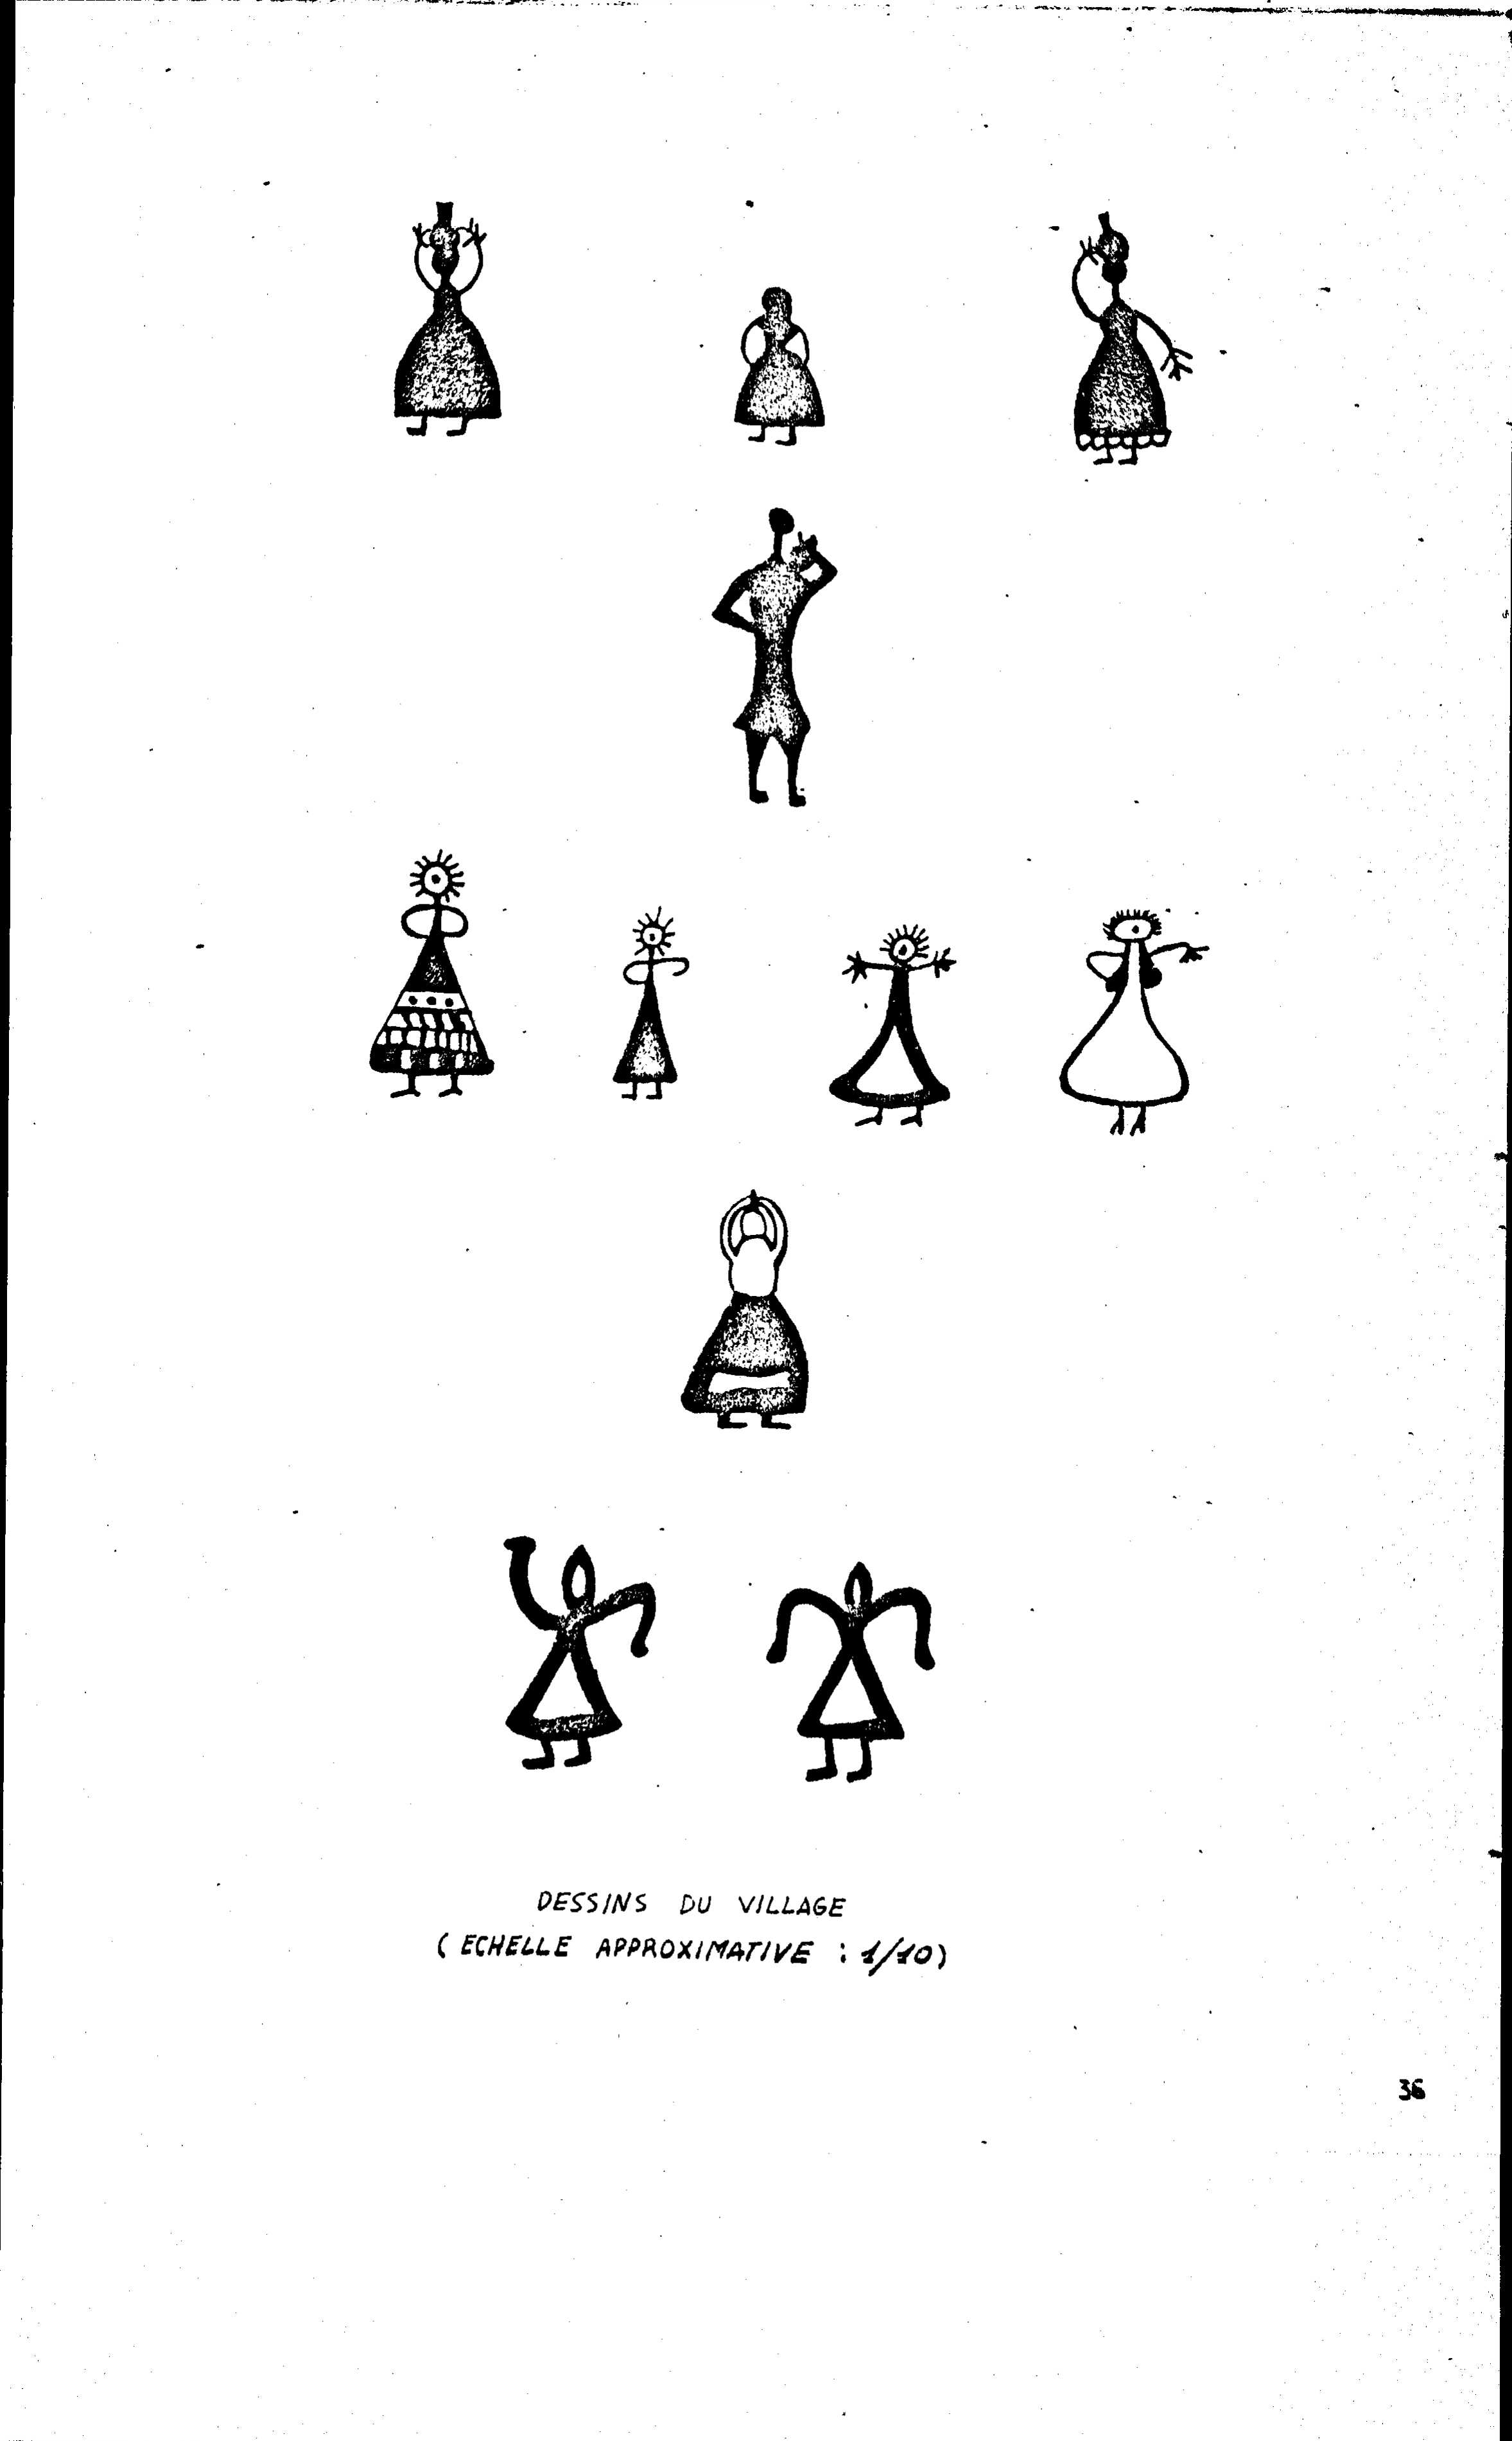 DESSINS DU VILLAGE
( ECHELLE APPROXIMATIVE : 1/10)
36